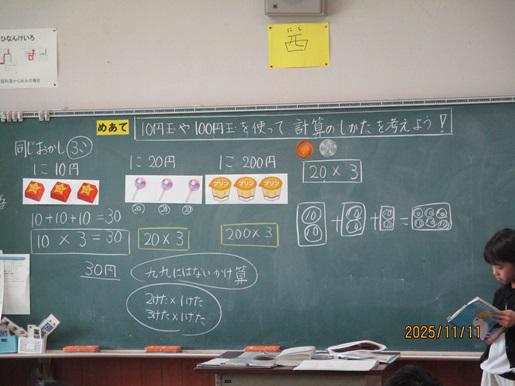 ひなんけいろ
にし
西
めあて
10円玉や100円玉を使って計算のしかたを考えよう!
同じおかし(3こ)
1こ 10円
1こ 20円
1こ 200円
20 × 3
プリン プリン プリン
20 20 20
10+10+10=30
10 × 3 = 30
20 × 3
200 × 3
10 10 + 10 10 + 10 10 = 10 10 10 10 10 10
30円
九九にはないかけ算
2けた×1けた
3けた×1けた
2025/11/11